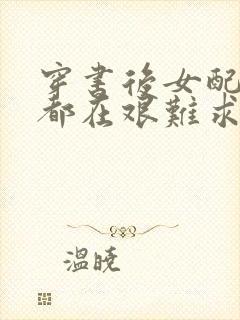 穿書後女配
都在艱難求
溫曉